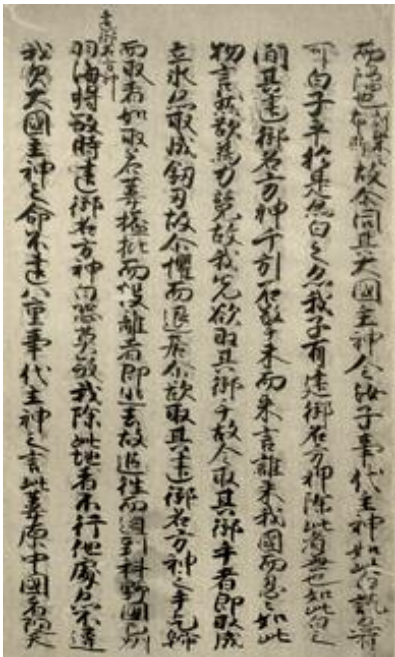 而隠也訓柴云布斯故尒問其大國主神今汝子事代主神如此白訖亦有
可白子乎於是亦白之亦我子有建御名方神除此者無也如此白之
間其建御名方神千引石擎手末而来言誰来我國而忍々如此
物言然欲為力競故我先欲取其御手故令取其御手者即取成
立氷亦取成釼刃故尒懼而退居尒欲取其建御名方神之手乞歸
而取者如取若葦搤批而投離者即逃去故追往而迫到科野國州
建御名方神
羽海将殺時建御名方神白恐莫殺我除此地者不行他處亦不違
我父大國主神之命不違八重事代主神之言此葦原中國者随天